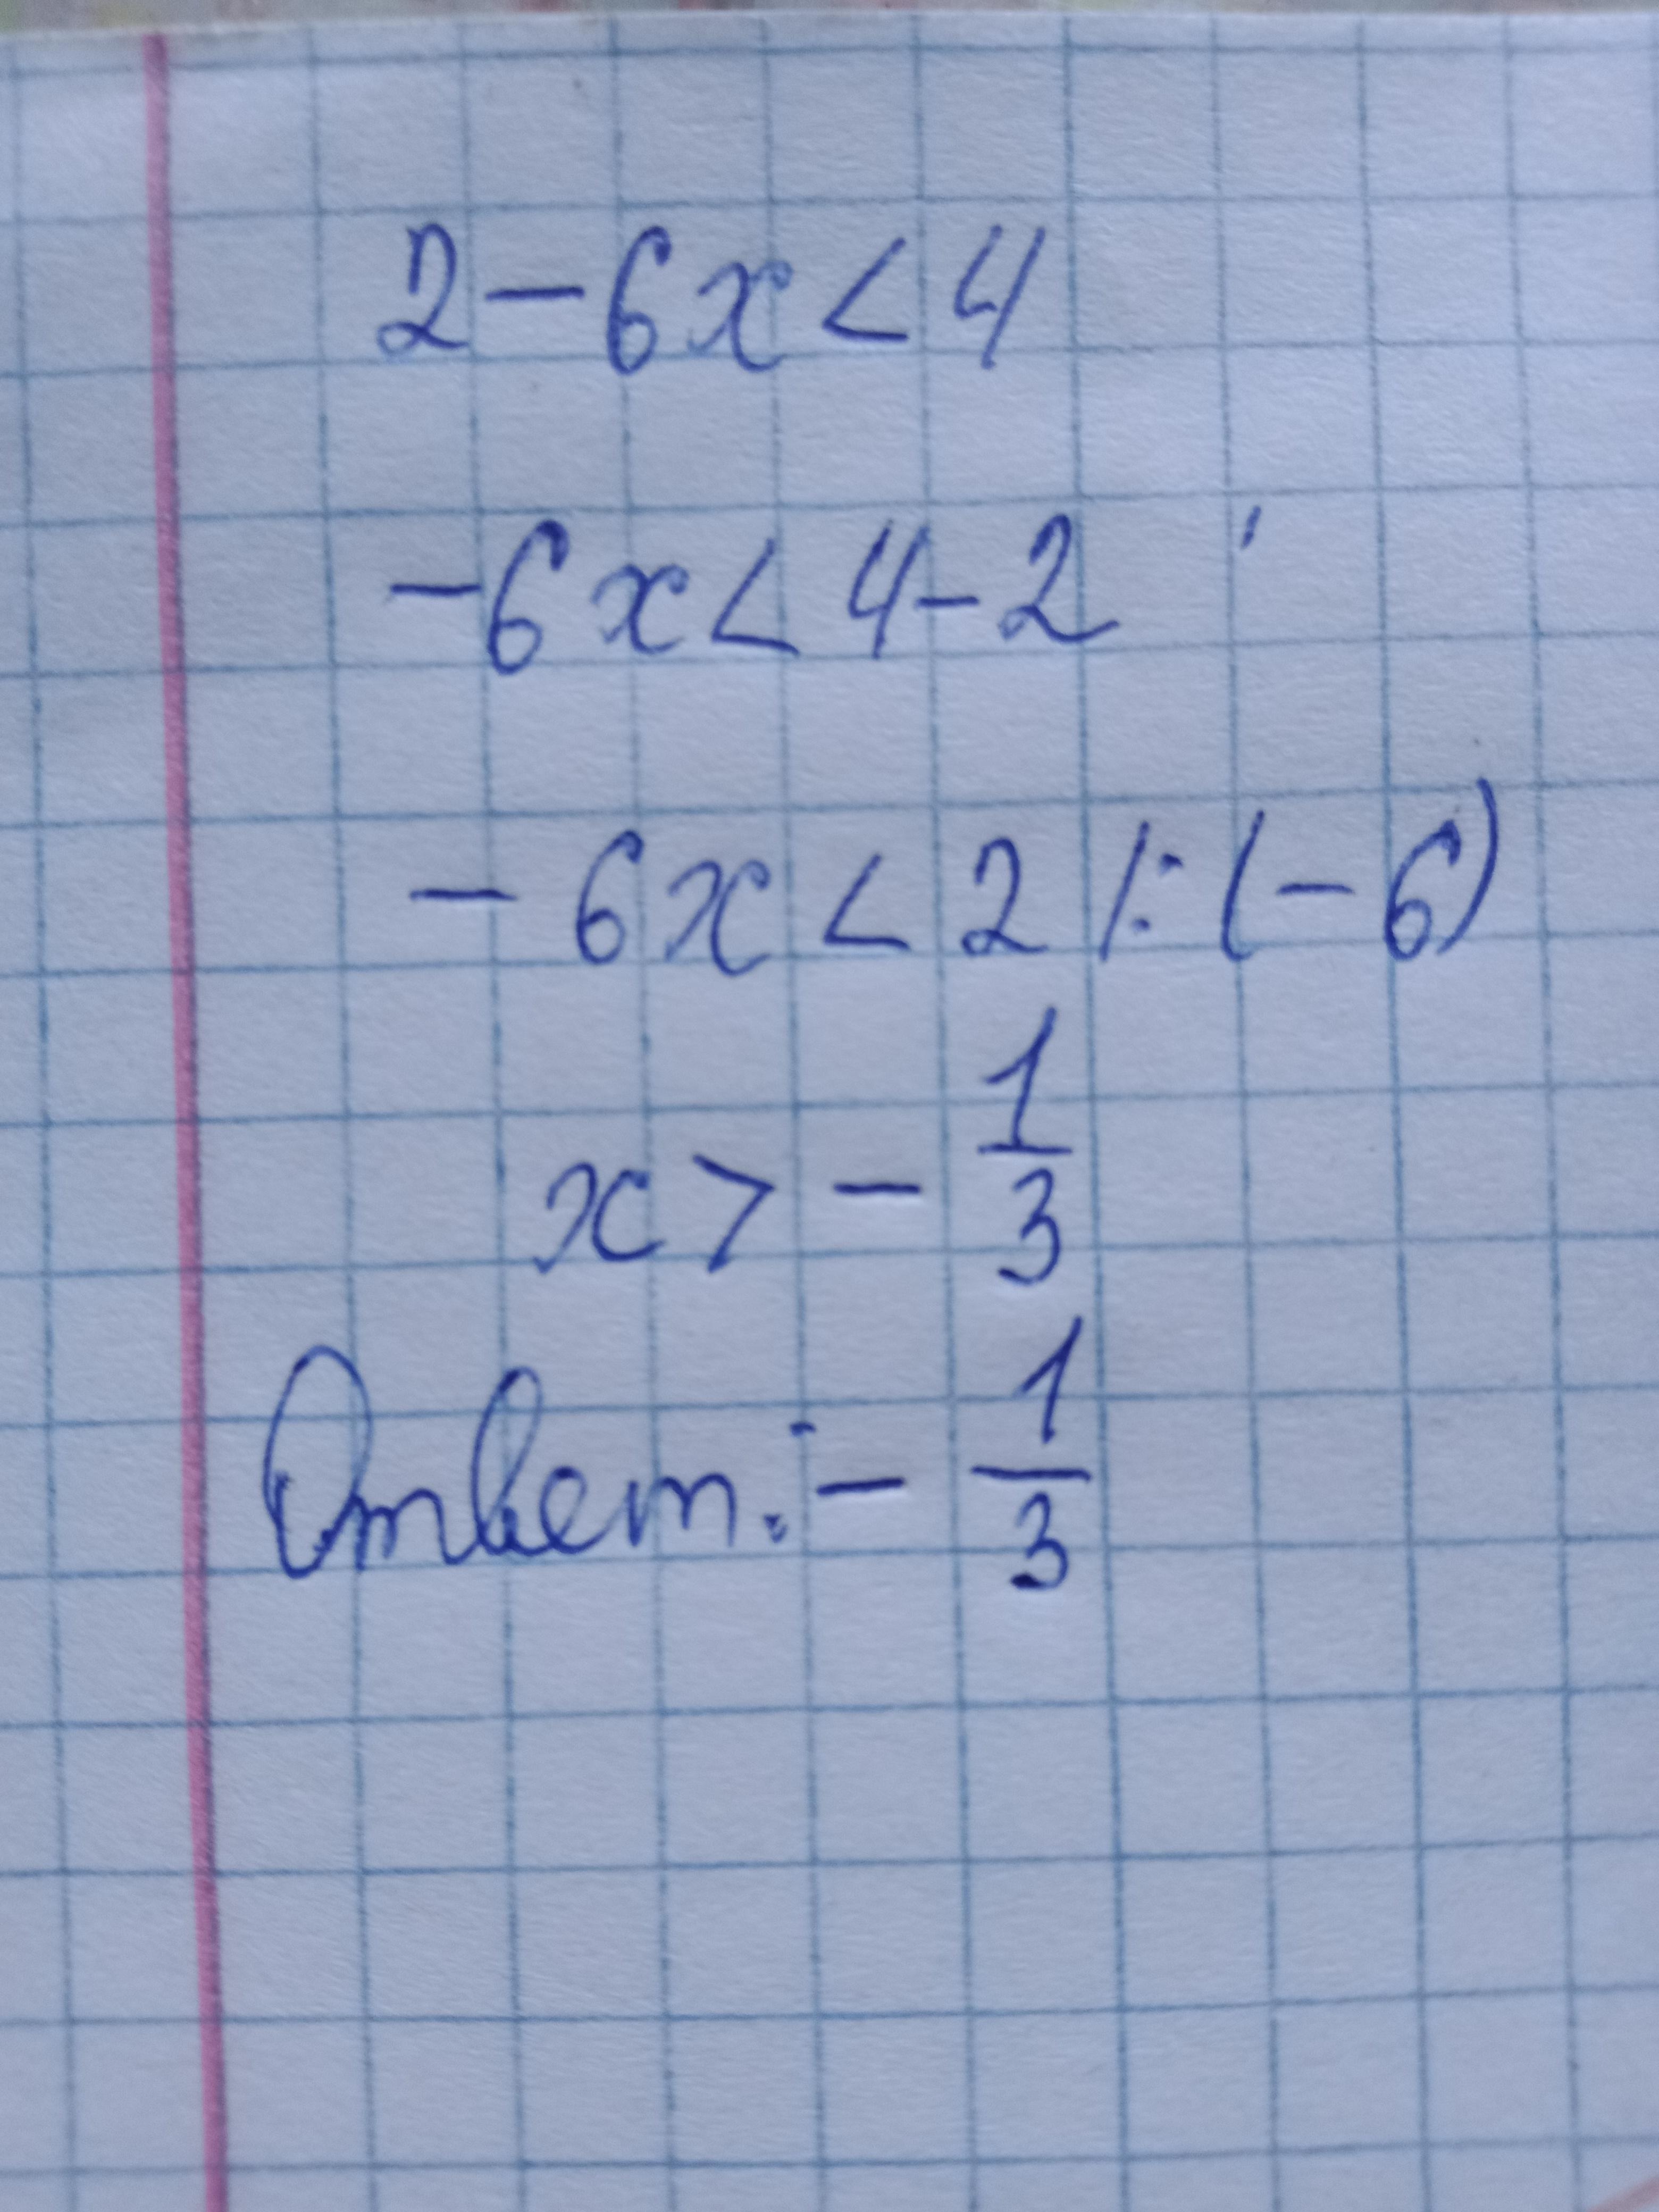 2 - 6x < 4
-6x < 4 - 2
- 6x < 2 /: (- 6)
x > - 1/3
Ответ: - 1/3